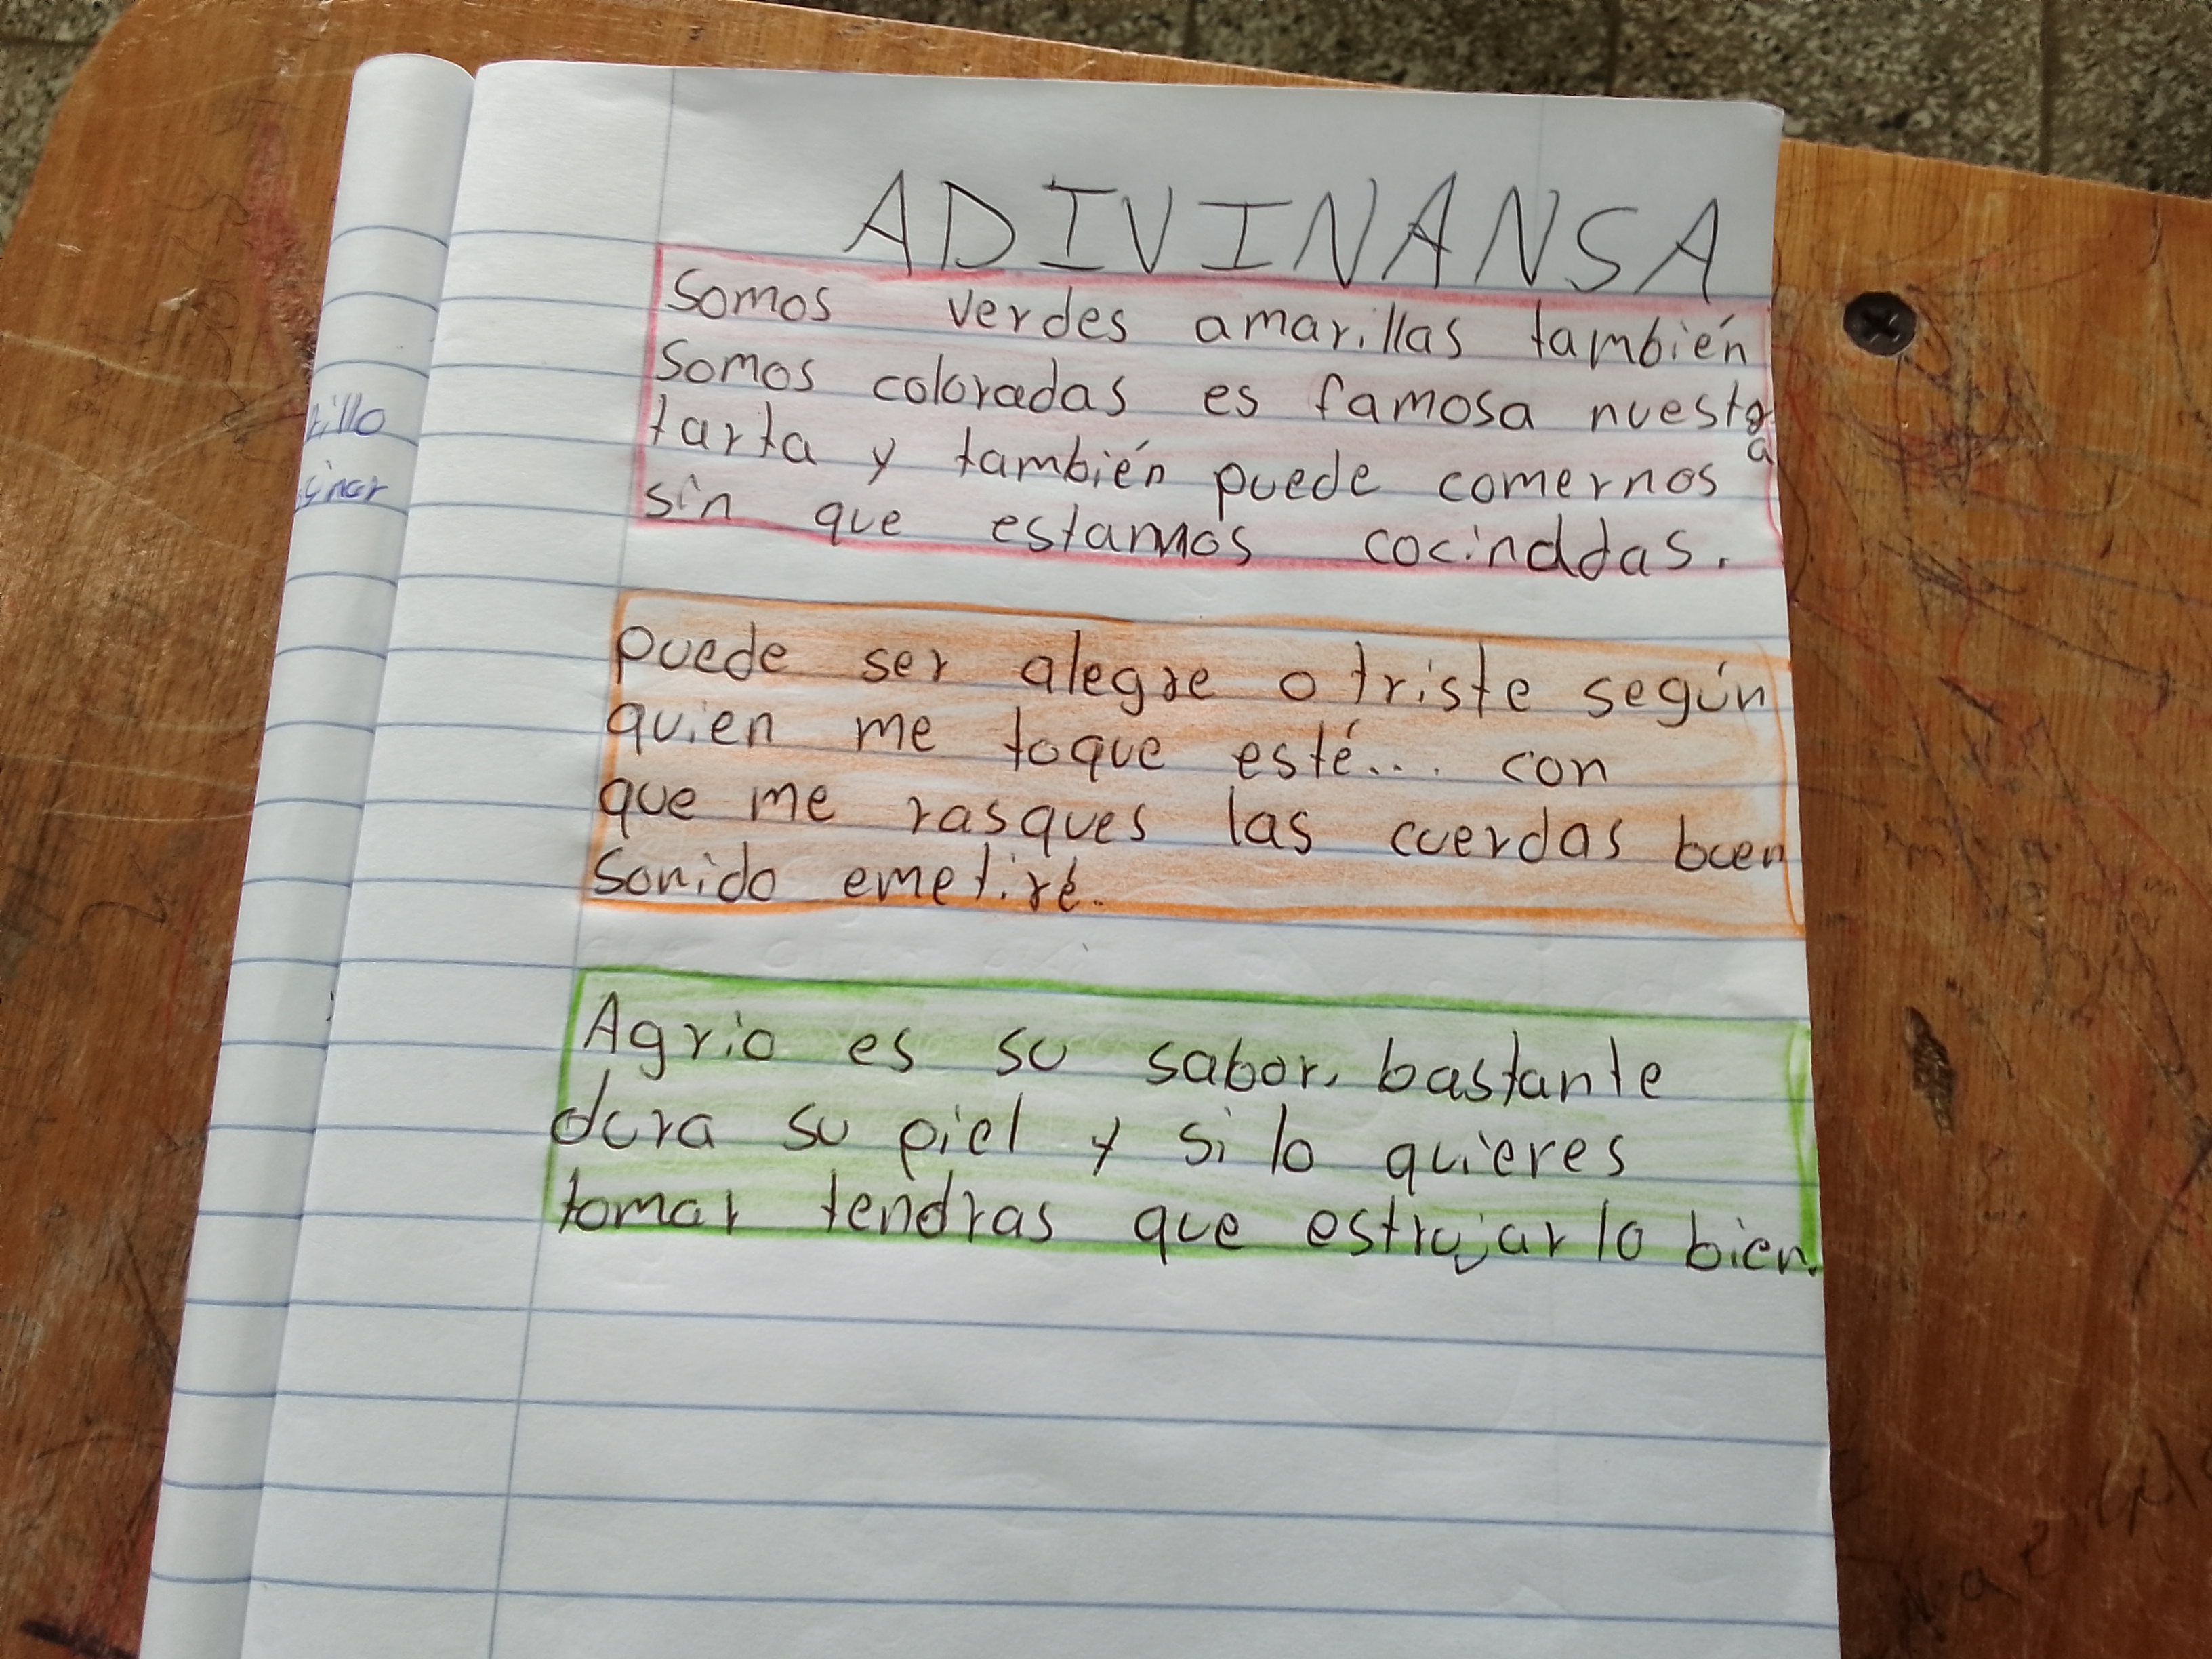 ADIVINANSA
Somos verdes amarillas también
somos coloradas es famosa nuestra
tarta y también puede comernos
sin que estamos cocinadas.
puede ser alegre o triste según
quien me toque esté... con
que me rasques las cuerdas buen
sonido emetiré.
Agrio es su sabor, bastante
dura su piel y si lo quieres
tomar tendras que estrujarlo bien.